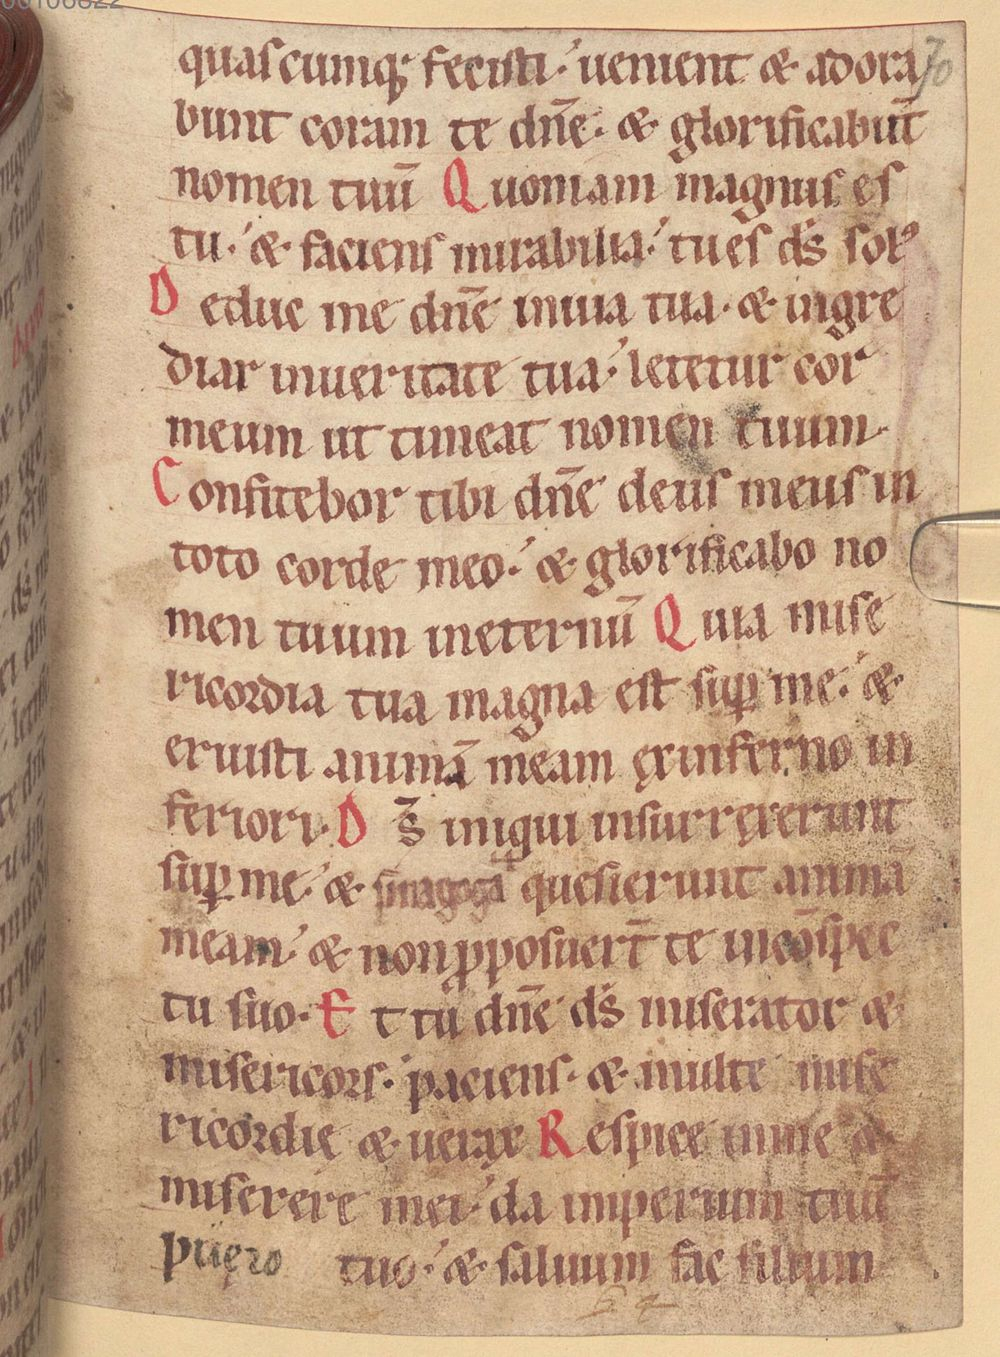 00106822
70
quascumq; fecisti. uenient & adora
bunt coram te dn̄e. & glorificabūt
nomen tuū Quoniam magnus es
tu. & faciens mirabilia. tu es d̄s sol
Deduc me dn̄e inuia tua. & ingre
diar inueritate tua. letetur cor
meum ut timeat nomen tuum.
Confitebor tibi dn̄e deus meus in
toto corde meo. & glorificabo no
men tuum ineternū Quia mise
ricordia tua magna est suꝑ me. &
eruisti animā meam exinferno in
feriori. D s̄ iniqui insurrexerunt
suꝑ me. & sinagoga quesierunt animā
meam. & nonꝓposuer̄t te incōspec
tu suo. Et tu dn̄e d̄s miserator &
misericors. paciens. & multe mise
ricordię & uerax Respice inme &
miserere mei. da imperium tuū
puęro tuo. & saluum fac filium